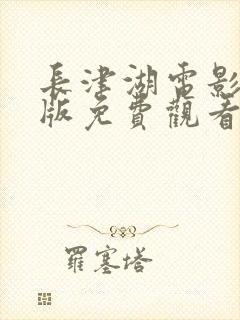 長津湖電影
版免費觀看
羅塞塔